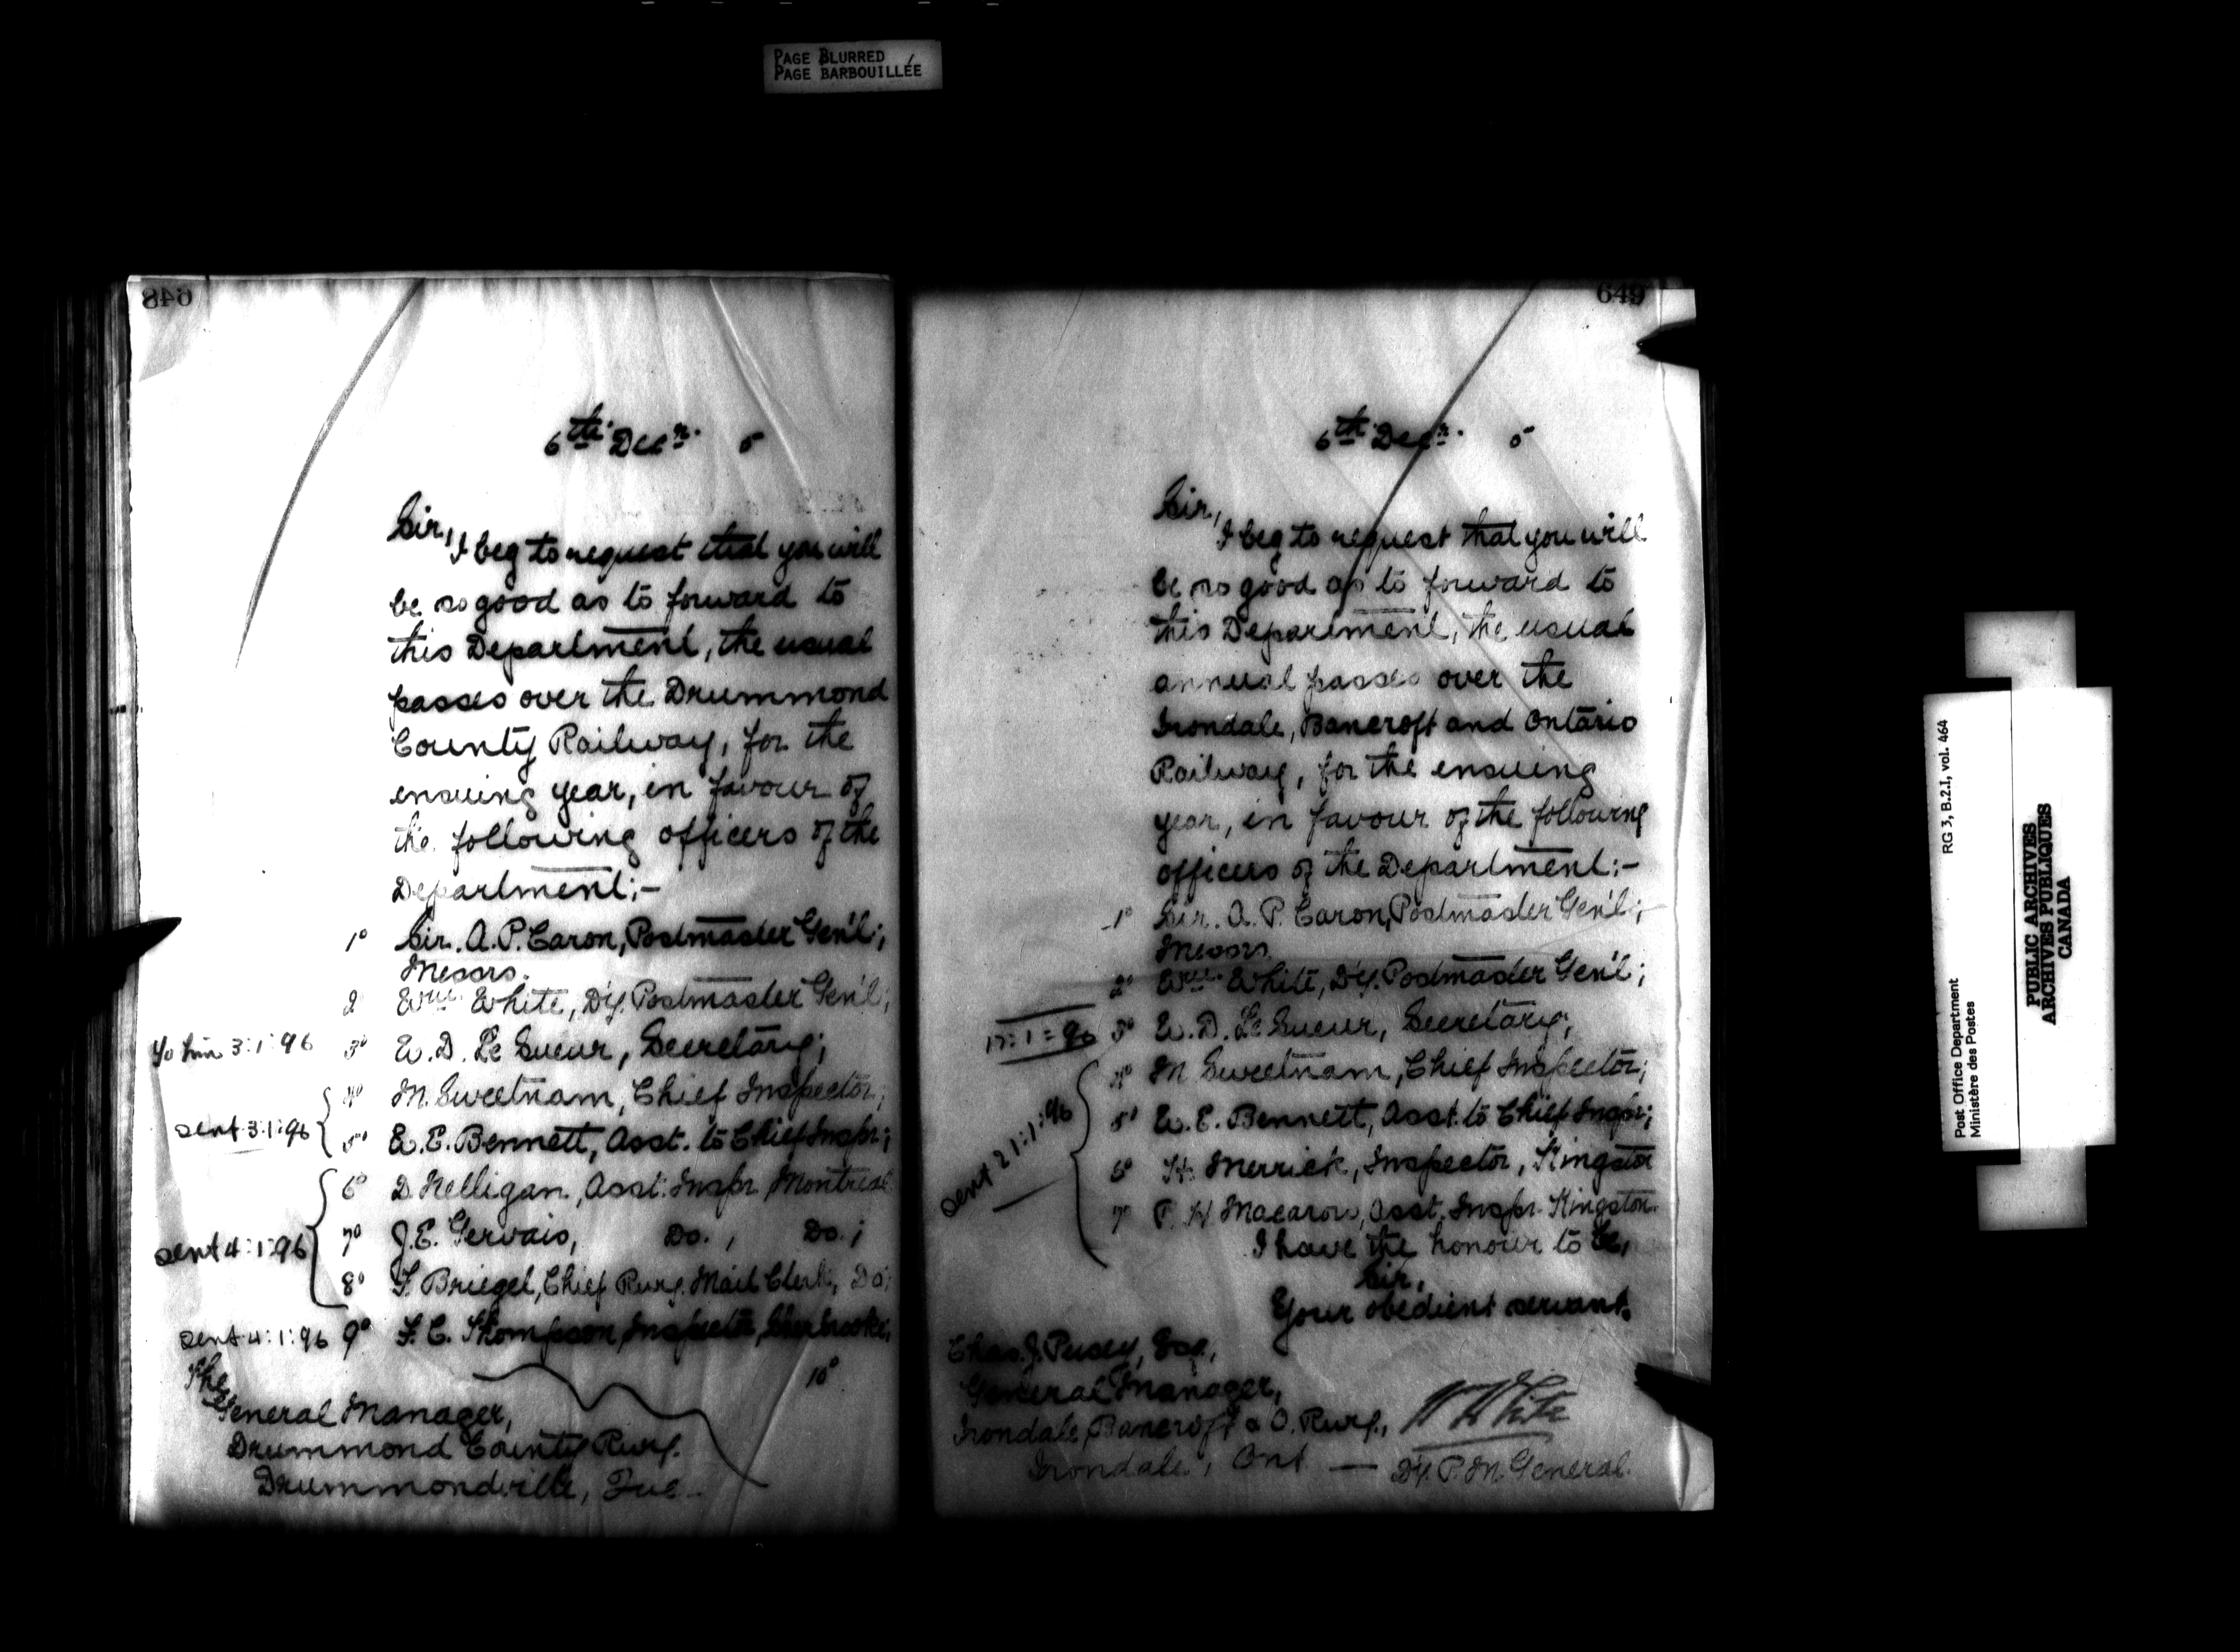 PAGE BLURRED
PAGE BARBOUILLÉE
648
6th. Decr. 5
Sir,
I beg to request that you will
be so good as to forward to
this Department, the usual
passes over the Drummond
County Railway, for the
ensuing year, in favour of
the following officers of the
Department:—
1° Sir. A. P. Caron, Postmaster Gen'l;
Messrs.
2° Wm. White, Dy. Postmaster Gen'l;
To him 3:1:96 3° W. D. Le Sueur, Secretary;
4° M. Sweetnam, Chief Inspector;
sent 3:1:96 5° W. E. Bennett, Asst. to Chief Inspr;
6° D. Nelligan, Asst. Inspr Montreal
7° J. E. Gervais, Do., Do.;
sent 4:1:96
8° F. Briegel, Chief Rwy. Mail Clerk, Do;
sent 4:1:96 9° F. C. Thompson, Inspector, Sherbrooke;
10°
The
General Manager,
Drummond County Rwy.
Drummondville, Que—
649
6th. Decr. 5
Sir,
I beg to request that you will
be so good as to forward to
this Department, the usual
annual passes over the
Irondale, Bancroft and Ontario
Railway, for the ensuing
year, in favour of the following
officers of the Department:—
1° Sir. A. P. Caron, Postmaster Gen'l;
Messrs.
2° Wm. White, Dy. Postmaster Gen'l;
3° W. D. Le Sueur, Secretary;
4° M Sweetnam, Chief Inspector;
5° W. E. Bennett, Asst. to Chief Inspr;
sent 21:1:96
6° H. Merrick, Inspector, Kingston
7° P. H. Macarow, Asst. Inspr. Kingston.
I have the honour to be,
Sir,
Your obedient servant.
Chas. J. Pusey, Esq.,
General Manager,
Irondale, Bancroft & O. Rwy.,
W White
Irondale, Ont — Dy. P. M. General.
RG 3, B.2.I, vol. 464
Post Office Department
Ministère des Postes
PUBLIC ARCHIVES
ARCHIVES PUBLIQUES
CANADA